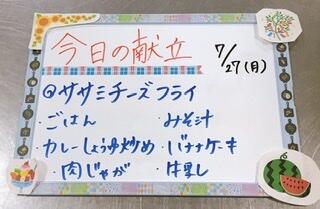 今日の献立
7/27(月)
@ササミチーズフライ
・ごはん ・みそ汁
・カレーしょうゆ炒め ・バナナケーキ
・肉じゃが ・牛乳